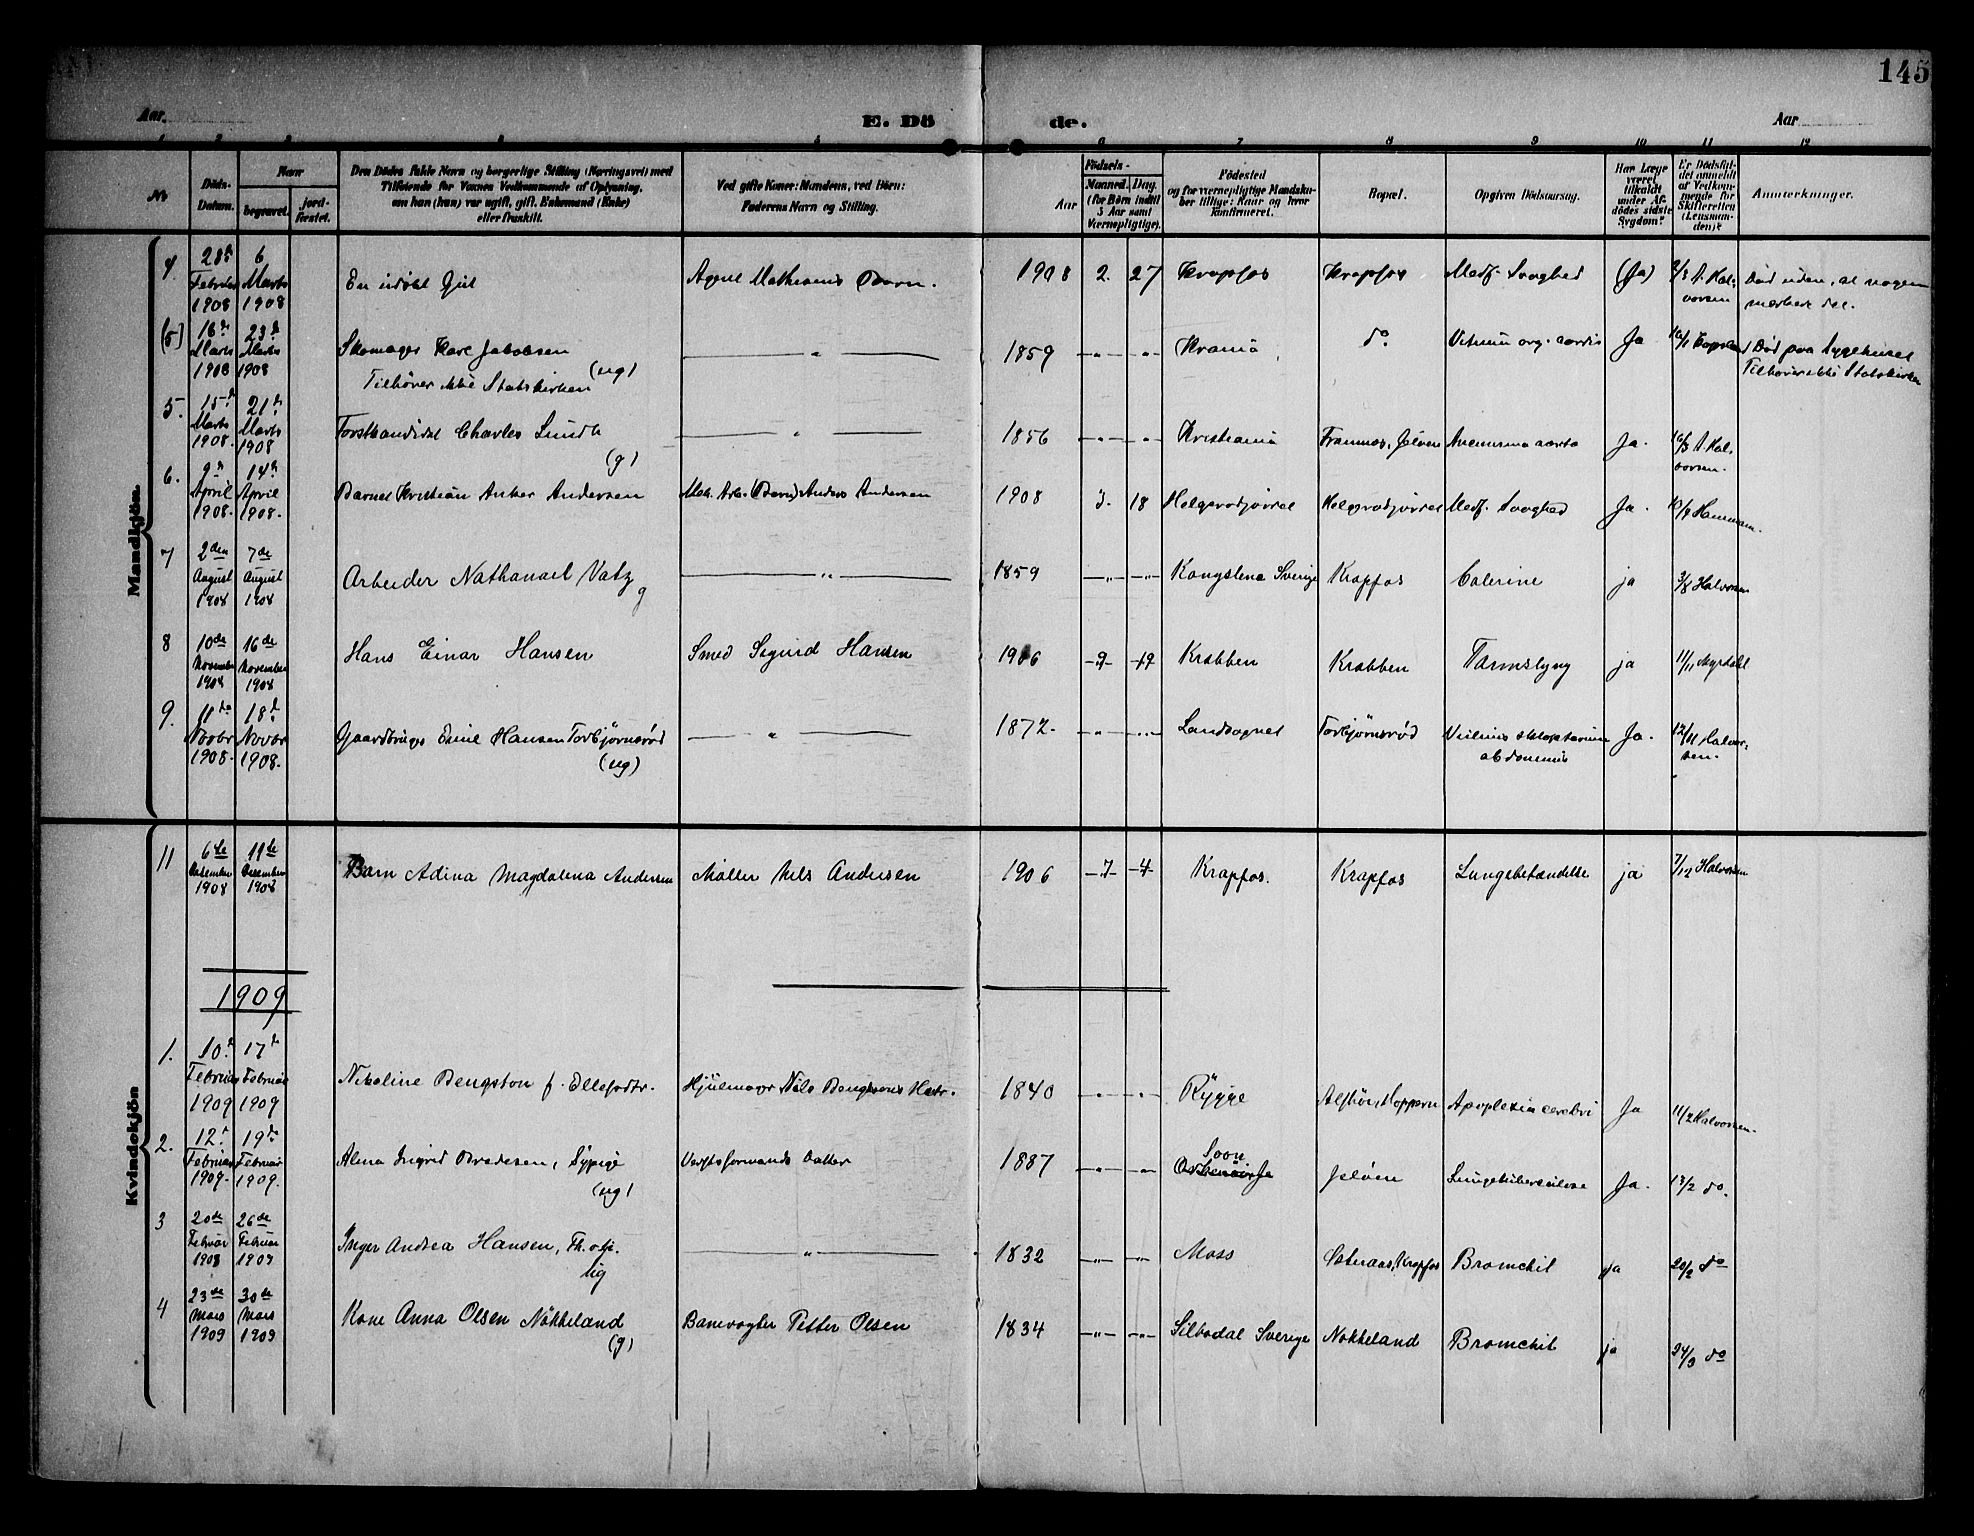 145
Aar
E. Dö de.
Aar
1 2 3 4 5 6 7 8 9 10 11 12
No
Döds-Datum.
Naar
begravet.
jord-fæstet.
Den Dödes fulde Navn og borgerlige Stilling (Næringsvei) med
Tilföiende for Voxnes Vedkommende af Oplysning,
om han (hun) var ugift, gift, Enkemand (Enke)
eller fraskilt.
Ved gifte Koner: Mandens, ved Börn:
Faderens Navn og Stilling.
Aar
Födsels-
Maaned. Dag.
(for Börn indtil
3 Aar samt
Værnepligtige).
Födested
og for værnepligtige Mandska-
ber tillige: Naar og hvor
konfirmeret.
Bopæl.
Opgiven Dödsaarsag.
Har Læge
været
tilkaldt
under Af-
dödes sidste
Sygdom?
Er Dödsfal-
det anmeldt
af Vedkom-
mende for
Skifteretten
(Lensman-
den)?
Anmærkninger.
Mandkjön.
4. 28de Februar 1908 6 Marts 1908 En udöbt Gut Barn. 1908 2. 27 Krapfos Krapfos Medf. Svaghed (Ja) 2/3 A. Halvorsen Död uden, at nogen mærkede det.
(5) 16de Marts 1908 23de Marts 1908 Skomager Karl Jakobsen (ug) Tilhörer ikke Statskirken — " — 1859 " " Krania do Vitium org. cordis Ja Död paa Sygehuset Tilhörer ikke Statskirken
5. 15de Marts 1908. 21de Marts 1908 Forstkandidat Charles Lundh (g) — " — 1856 " " Kristiania Framnes, Jelöen Aneurisma aorta Ja. 16/3 A. Halvorsen.
6. 9de April 1908. 14de April 1908. Barnet Kristian Anker Andersen Mek. Arb. (Barn) Anders Andersen 1908 3. 18 Helgerödjörret Helgerödjörret Medf. Svaghed Ja. 10/4
7 2den August 1908 7de August 1908 Arbeider Nathanael Vatz g — " — 1859 " " Kongslena Sverige Krapfos Colerine ja 3/8 Halvorsen
8 10de November 1908 16de November 1908 Hans Einar Hansen Smed Sigurd Hansen 1906 9 19 Krabben Krabben Tarmslyng ja 11/11 Myrdahl
9. 11de Novbr 1908. 18de Novbr 1908. Gaardbruger Emil Hansen Torbjörnsröd (ug) — " — 1872. " " Landsognet Torbjörnsröd abdominis Ja. 12/11 Halvorsen.
Kvindekjön
11 6te Desember 1908 11te Desember 1908 Barn Adina Magdalena Andersen Möller Nils Andersen 1906 7 4 Krapfos. Krapfos Lungebetændelse ja 7/12 Halvorsen
1909
1. 10de Februar 1909 17de Februar 1909 Nikoline Bengston f. Ellefsdtr. Hjulmager Nils Bengtsons Hustr. 1840 " " Rygge Apoplexia cerebri Ja 11/2 Halvorsen.
2. 12te Februar 1909. 19de Februar 1909. Alma Ingrid Bredesen, Sypige (ug) Verftsformands Datter 1887 " " Soon Jelöen Lungetuberculose Ja. 13/2 do.
3 20de Februar 1909 26de Februar 1909 Inger Andrea Hansen, ug — " — 1832 " " Moss Österaas, Krapfos Bronchit ja 20/2 do
4 23de Mars 1909 30de Mars 1909 Kone Anna Olsen Nökkeland (g) Banevogter Petter Olsen 1834 " " Silbodal Sverige Nökkeland Bronchit ja 24/3 do